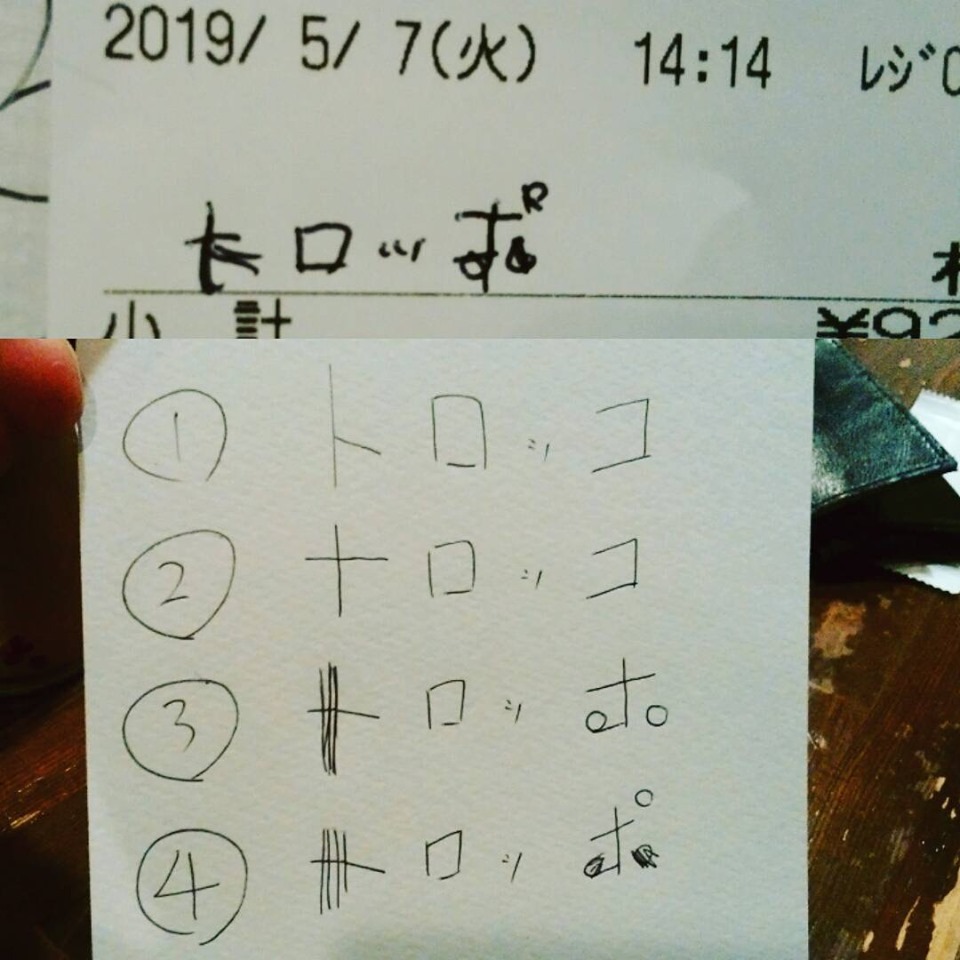 2019/ 5/ 7(火) 14:14 ﾚｼﾞ0
トロッポ
小 計 ¥92
① トロッコ
② 十ロッコ
③ トロッホ
④ トロッポ